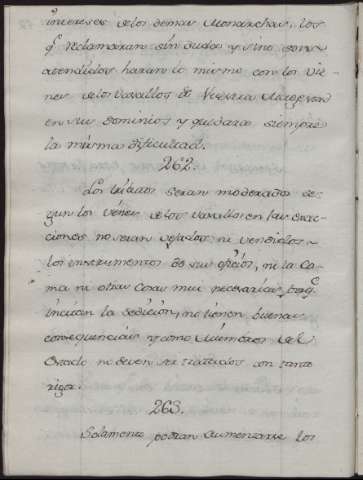 intereses de los demas Monarchas, los
q.e reclamaran sin duda y sino son
atendidos haran lo mismo con los Vie-
nes de los Vasallos de Vuestra Mag.
en sus dominios y quedara siempre
la misma dificultad.
262.
Los tributos seran moderados se-
gun los Vienes de los Vasallos en las exac-
ciones no seran vejados, ni vendidos
los instrumentos de sus oficios, ni la Ca-
ma ni otras cosas mui necesarias, porq.
incitan la sedicion, no tienen buenas
consequencias y como Miembros del
Estado no deven ser tratados con tanto
rigor.
263.
Solamente podran aumentarse los